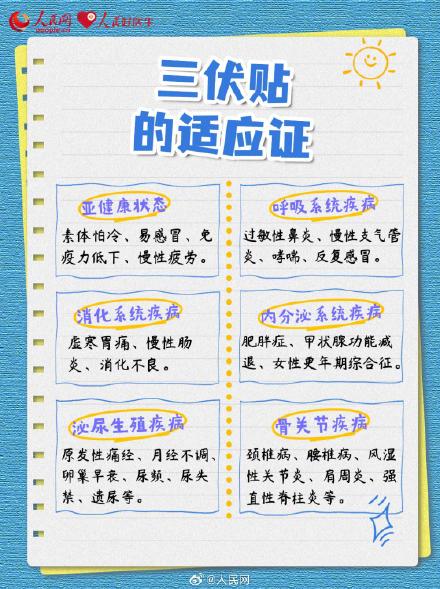 人民网
people.cn
人民好医生
三伏贴
的适应证
亚健康状态
素体怕冷、易感冒、免
疫力低下、慢性疲劳。
呼吸系统疾病
过敏性鼻炎、慢性支气管
炎、哮喘、反复感冒。
消化系统疾病
虚寒胃痛、慢性肠
炎、消化不良。
内分泌系统疾病
肥胖症、甲状腺功能减
退、女性更年期综合征。
泌尿生殖疾病
原发性痛经、月经不调、
卵巢早衰、尿频、尿失
禁、遗尿等。
骨关节疾病
颈椎病、腰椎病、风湿
性关节炎、肩周炎、强
直性脊柱炎等。
@人民网